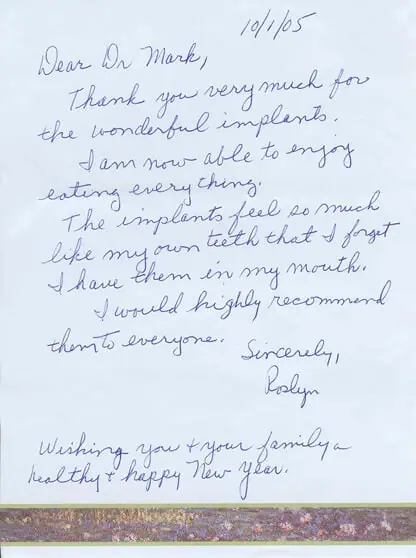 10/1/05
Dear Dr Mark,
Thank you very much for
the wonderful implants.
I am now able to enjoy
eating everything.
The implants feel so much
like my own teeth that I forget
I have them in my mouth.
I would highly recommend
them to everyone.
Sincerely,
Roslyn
Wishing you + your family a
healthy + happy New Year.